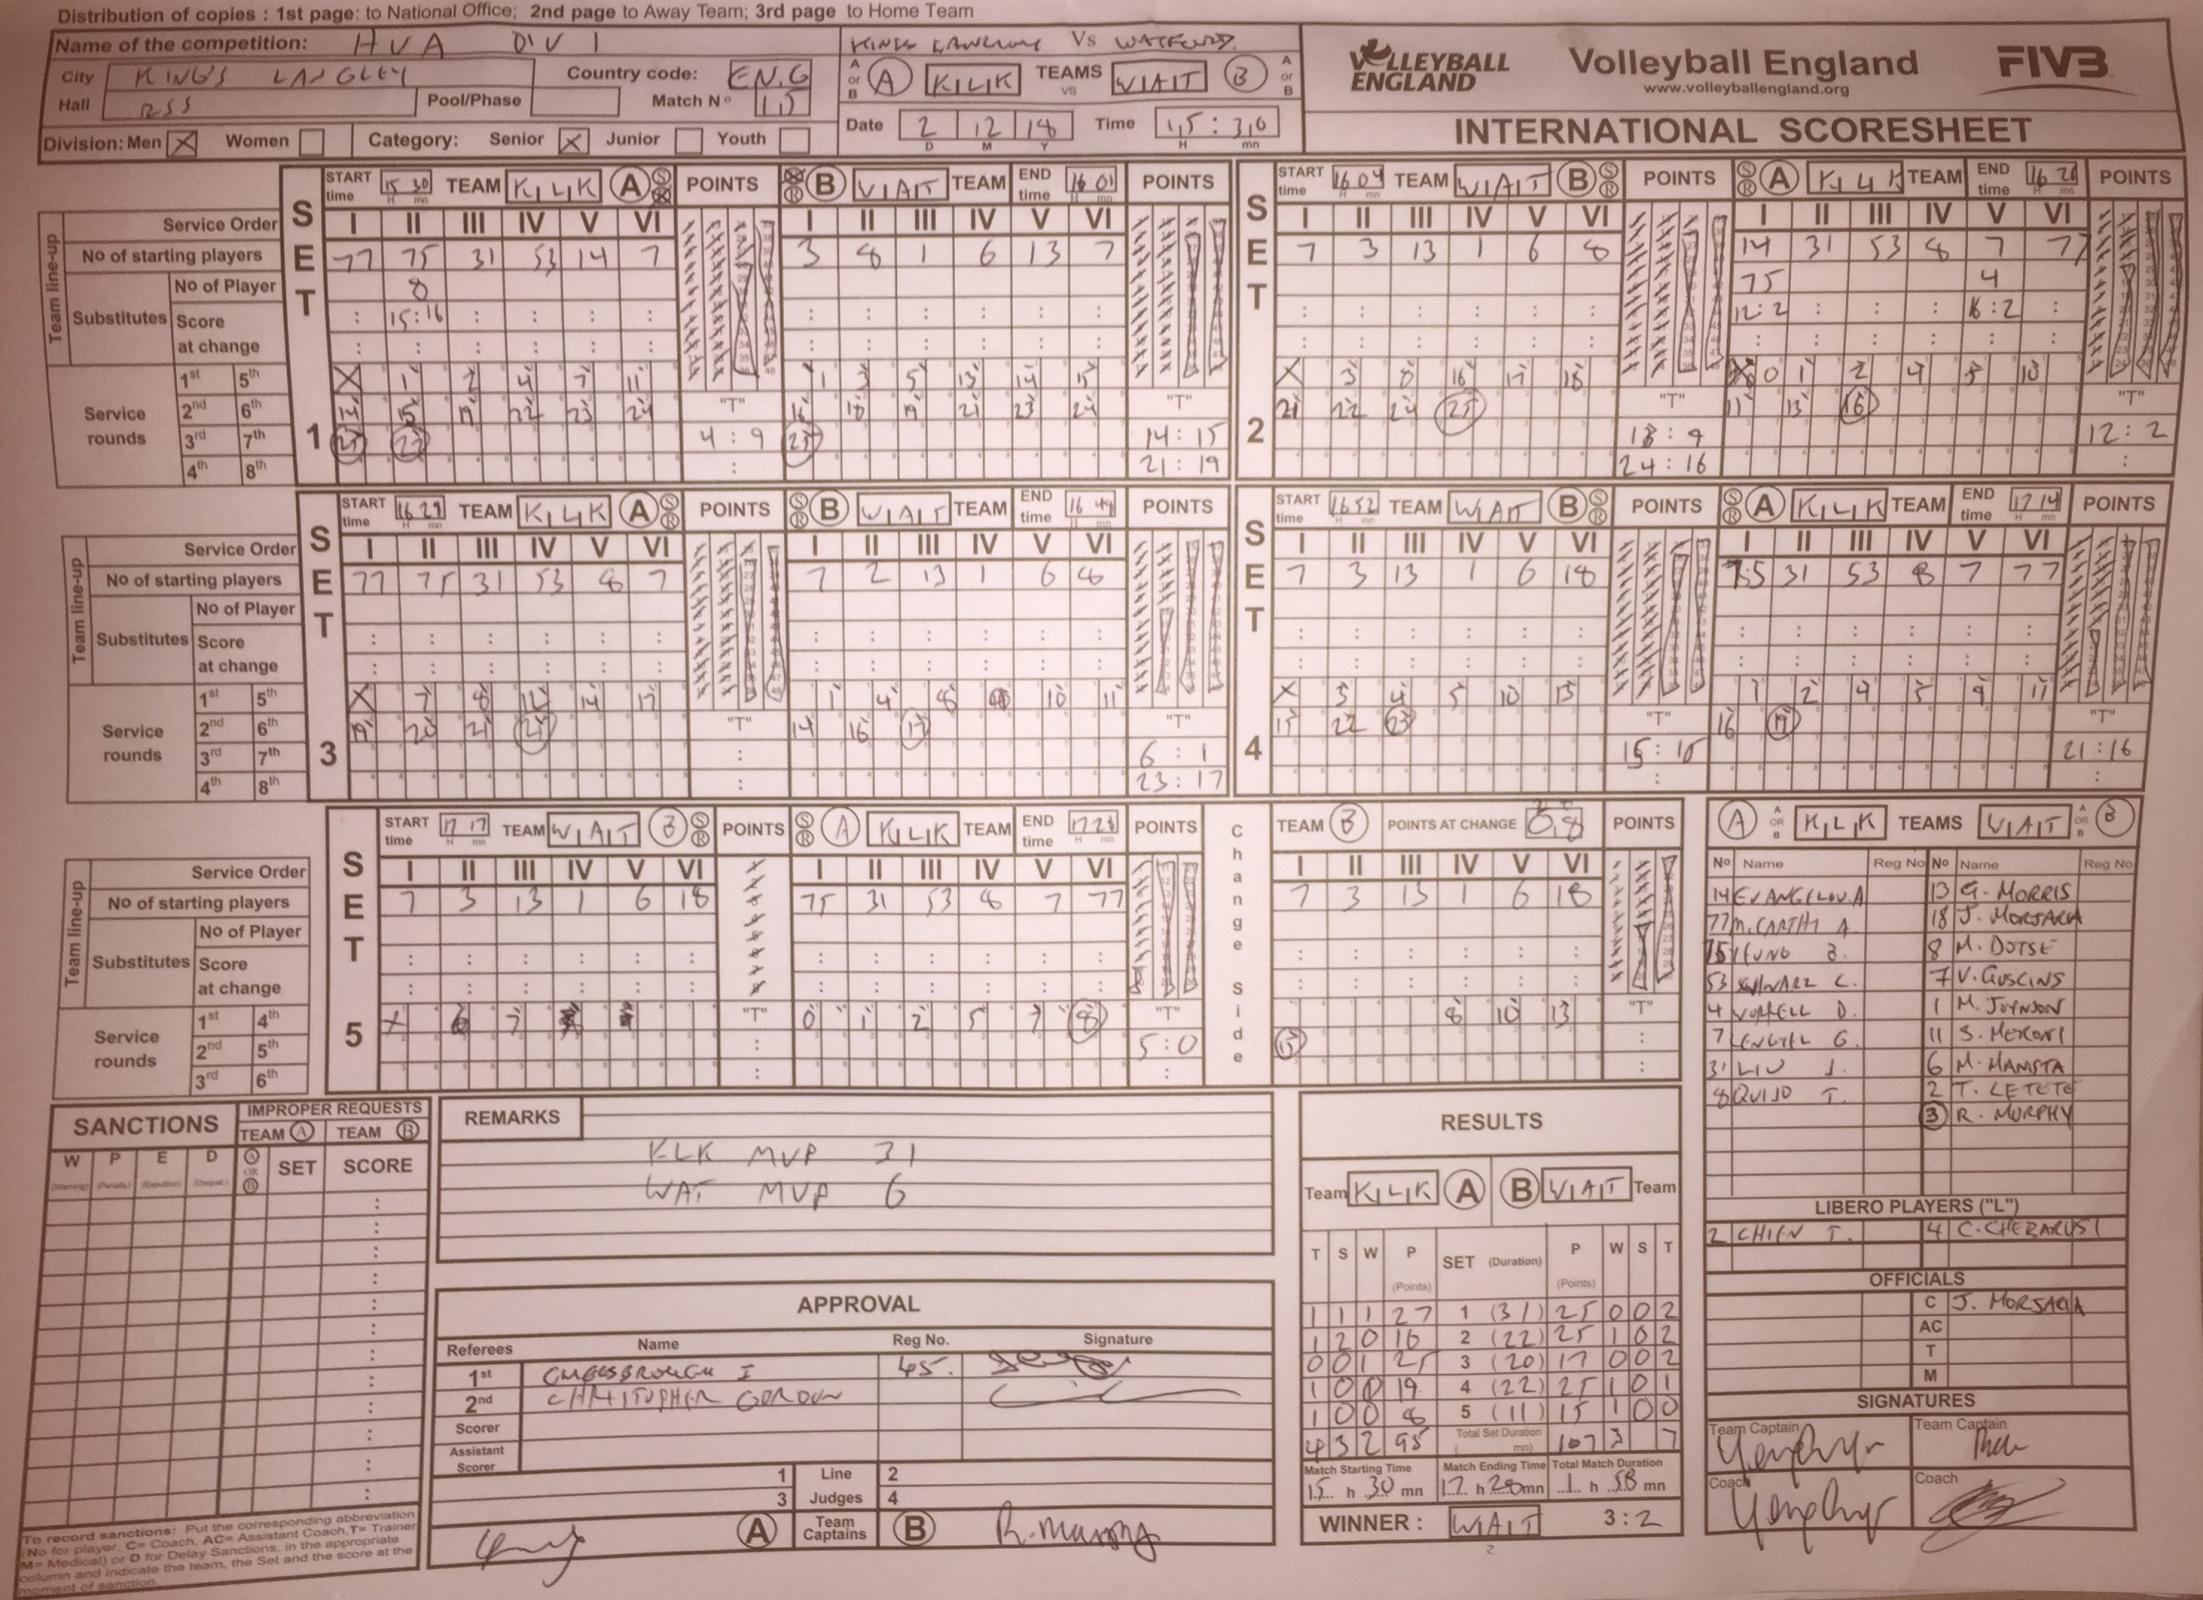 Distribution of copies : 1st page: to National Office; 2nd page to Away Team; 3rd page to Home Team
Name of the competition: HVA DIV 1
KINGS LANGLEY Vs WATFORD.
City KINGS LANGLEY Country code: ENG
Hall RSS Pool/Phase Match Nº 15
A or B A KLK TEAMS vs WAT B A or B
Date 2 12 18 Time 15 : 30
D M Y H mn
Division: Men X Women Category: Senior X Junior Youth
VOLLEYBALL ENGLAND
Volleyball England
www.volleyballengland.org
FIVB
INTERNATIONAL SCORESHEET
SET 1
START time 15 30 TEAM KLK A S R POINTS
B WAT TEAM END time 16 01 POINTS
Service Order I II III IV V VI I II III IV V VI
No of starting players 77 75 31 53 14 7 3 8 1 6 13 7
Team line-up
Substitutes No of Player 8
Score at change 15:16
Service rounds
1st 5th X 1 2 4 7 11 1 3 5 13 14 15
2nd 6th 14 15 19 22 23 24 "T" 16 18 19 21 23 24 "T"
3rd 7th 25 27 4 : 9 25 14 : 15
4th 8th : 21 : 19
SET 2
START time 16 04 TEAM WAT B S R POINTS
S R A KLK TEAM END time 16 26 POINTS
I II III IV V VI I II III IV V VI
7 3 13 1 6 8 14 31 53 8 7 77
75 4
12:2 16:2
X 3 8 16 17 18 0 1 2 4 5 10
21 22 24 25 "T" 11 13 16 "T"
18 : 9 12 : 2
24 : 16 :
SET 3
START time 16 29 TEAM KLK A S R POINTS
S R B WAT TEAM END time 16 49 POINTS
Service Order I II III IV V VI I II III IV V VI
No of starting players 77 75 31 53 8 7 7 2 13 1 6 8
Team line-up
Substitutes No of Player
Score at change
Service rounds
1st 5th X 7 8 12 14 17 1 4 8 10 11
2nd 6th 19 20 21 25 "T" 14 16 17 "T"
3rd 7th : 6 : 1
4th 8th : 23 : 17
SET 4
START time 16 52 TEAM WAT B S R POINTS
S R A KLK TEAM END time 17 14 POINTS
I II III IV V VI I II III IV V VI
7 3 13 1 6 18 75 31 53 8 7 77
X 3 4 5 10 13 1 2 4 5 9 11
15 22 "T" 16 19 "T"
15 : 10 21 : 16
SET 5
START time 17 17 TEAM WAT B S R POINTS
S R A KLK TEAM END time 17 28 POINTS
Change Side
TEAM B POINTS AT CHANGE 8 POINTS
Service Order I II III IV V VI I II III IV V VI I II III IV V VI
No of starting players 7 3 13 1 6 18 75 31 53 8 7 77 7 3 13 1 6 18
Team line-up
Substitutes No of Player
Score at change
Service rounds
1st 4th X 6 7 "T" 0 1 2 5 7 8 "T" 8 10 13 "T"
2nd 5th : 5:0 15 :
3rd 6th
A A OR B KLK TEAMS WAT A OR B B
Nº Name Reg No Nº Name Reg No
14 EVANGELOU.A 13 G. MORRIS
77 M.CARTHY A. 18 J. MORSARIA
75 8 M. DOTSE
53 SCHWARZ C. 7 V. GUSCINS
4 D. 1 M. JOYNSON
7 LENGYEL G. 11
31 LIU J. 6 M. MAMSTA
8 QUIJO T. 2 T. LETETE
3 R. MURPHY
LIBERO PLAYERS ("L")
2 CHIEN T. 4
OFFICIALS
C J. MORSARIA
AC
T
M
SIGNATURES
Team Captain Team Captain
Coach Coach
SANCTIONS IMPROPER REQUESTS
TEAM A TEAM B
W P E D A OR B SET SCORE
(Warning) (Penalty) (Expulsion) (Disqual.)
To record sanctions: Put the corresponding abbreviation
(No for player, C= Coach, AC= Assistant Coach, T= Trainer
M= Medical) or D for Delay Sanctions, in the appropriate
column and indicate the team, the Set and the score at the
moment of sanction.
REMARKS
KLK MVP 31
WAT MVP 6
APPROVAL
Referees Name Reg No. Signature
1st I 45.
2nd CHRISTOPHER GORDON
Scorer
Assistant Scorer
1 Line 2
3 Judges 4
A Team Captains B R. Murphy
RESULTS
Team KLK A B WAT Team
T S W P (Points) SET (Duration) P (Points) W S T
1 1 1 27 1 (31) 25 0 0 2
1 2 0 16 2 (22) 25 1 0 2
0 0 1 25 3 (20) 17 0 0 2
1 0 0 19 4 (22) 25 1 0 1
1 0 0 8 5 (11) 15 1 0 0
4 3 2 95 Total Set Duration ( mn) 107 3 7
Match Starting Time Match Ending Time Total Match Duration
15 h 30 mn 17 h 28 mn 1 h 58 mn
WINNER : WAT 3 : 2